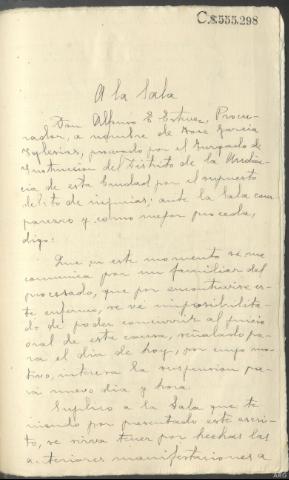 C.8555.298
A la Sala
Don Alfonso E. Esteve, Procu-
rador, a nombre de Jose Garcia
Iglesias, procesado por el Juzgado de
Instruccion del Distrito de la Audien-
cia de esta Ciudad por el supuesto
delito de injurias; ante la Sala com-
parezco y como mejor proceda,
digo:
Que en este momento se me
comunica por un familiar del
procesado, que por encontrarse es-
te enfermo, se vé imposibilita-
do de poder concurrir al juicio
oral de esta causa, señalado pa-
ra el dia de hoy, por cuyo mo-
tivo, intereso la suspension pa-
ra nuevo dia y hora.
Suplico a la Sala que te-
niendo por presentado este escri-
to, se sirva tener por hechas las
anteriores manifestaciones a